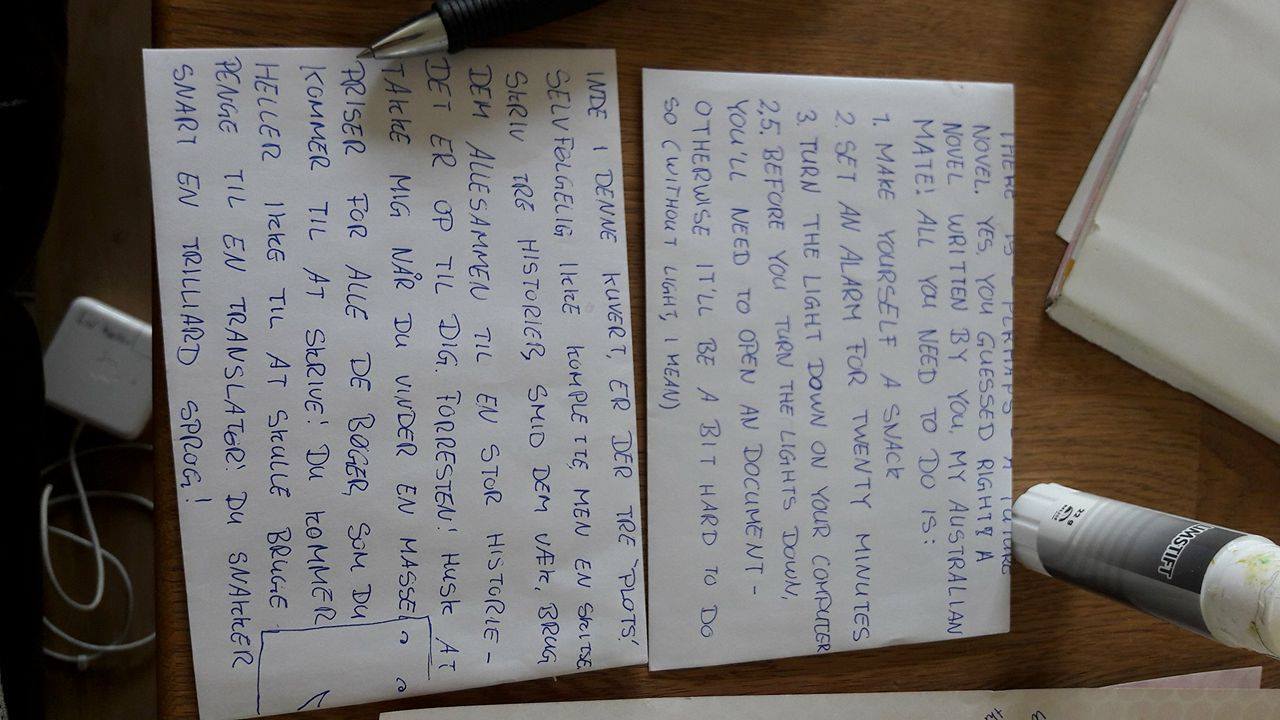 THERE IS PERHAPS A FUTURE
NOVEL. YES, YOU GUESSED RIGHT & A
NOVEL WRITTEN BY YOU, MY AUSTRALIAN
MATE! ALL YOU NEED TO DO IS:
1. MAKE YOURSELF A SNACK
2. SET AN ALARM FOR TWENTY MINUTES
3. TURN THE LIGHT DOWN ON YOUR COMPUTER
2,5. BEFORE YOU TURN THE LIGHTS DOWN,
YOU'LL NEED TO OPEN AN DOCUMENT -
OTHERWISE IT'LL BE A BIT HARD TO DO
SO (WITHOUT LIGHT, I MEAN)
INDE I DENNE KUVERT, ER DER TRE 'PLOTS'.
SELVFØLGELIG IKKE KOMPLETTE, MEN EN SKITSE
SKRIV TRE HISTORIER, SMID DEM VÆK, BRUG
DEM ALLESAMMEN TIL EN STOR HISTORIE -
DET ER OP TIL DIG. FORRESTEN! HUSK AT
TAKKE MIG NÅR DU VINDER EN MASSE
PRISER FOR ALLE DE BØGER, SOM DU
KOMMER TIL AT SKRIVE! DU KOMMER
HELLER IKKE TIL AT SKULLE BRUGE
PENGE TIL EN TRANSLATØR! DU SNAKKER
SNART EN TRILLIARD SPROG!
UMSTIFT
22 g